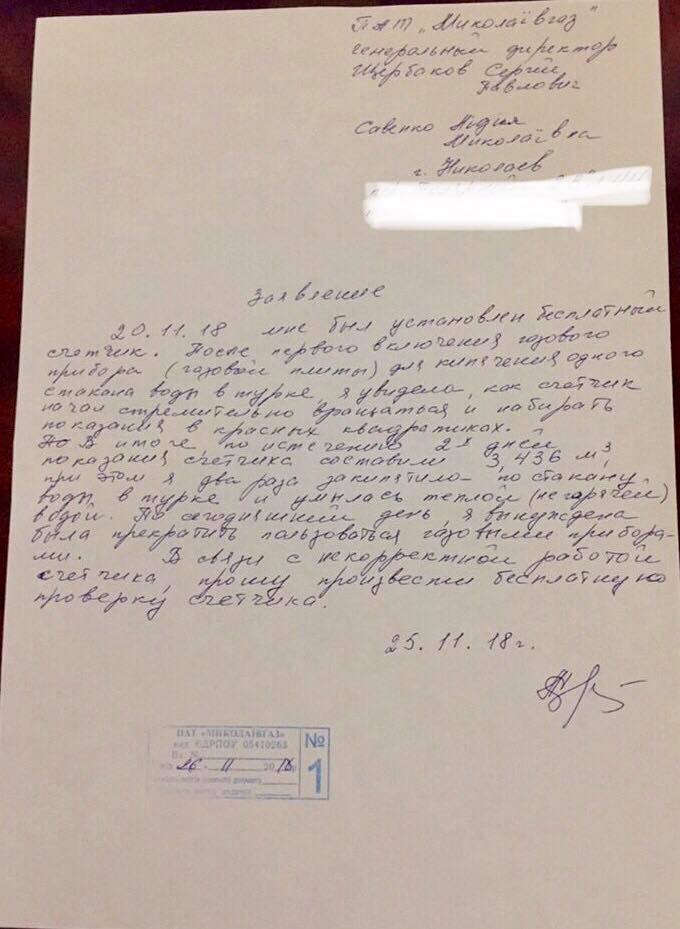 ПАТ „Миколаївгаз"
генеральный директор
Щербаков Сергій
Павлович
Савенко Лідия
Миколаївна
г. Николаев
Заявление
20.11.18 мне был установлен бесплатный
счетчик. После первого включения газового
прибора (газовой плиты) для кипячения одного
стакана воды в турке, я увидела, как счетчик
начал стремительно вращаться и набирать
показания в красных квадратиках.
В итоге по истечению 2х дней
показания счетчика составили 3,436 м³,
при этом я два раза закипятила по стакану
воды в турке и умылась теплой (не гарячей)
водой. По сегодняшний день я вынуждена
была прекратить пользоваться газовыми прибора-
ми. В связи с некорректной работой
счетчика, прошу произвести бесплатную
проверку счетчика.
25.11.18г.
ПАТ «МИКОЛАЇВГАЗ»
код ЄДРПОУ 05410263
Вх №
26 11 2018
№
1